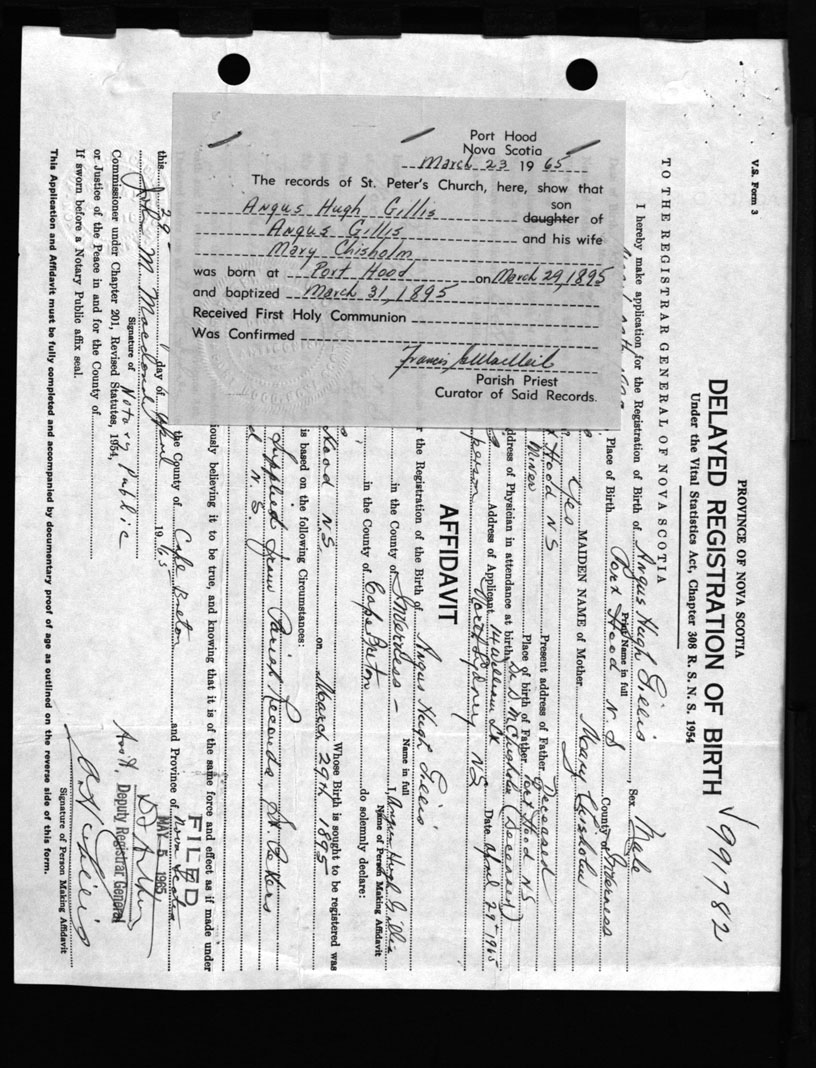 Port Hood
Nova Scotia
March 23 1965
The records of St. Peter's Church, here, show that
son
Angus Hugh Gillis daughter of
Angus Gillis and his wife
Mary Chisholm
was born at Port Hood on March 29, 1895
and baptized March 31, 1895
Received First Holy Communion
Was Confirmed
Francis
Parish Priest
Curator of Said Records.
V.S. Form 3
PROVINCE OF NOVA SCOTIA
DELAYED REGISTRATION OF BIRTH
√991782
Under the Vital Statistics Act, Chapter 308 R. S. N. S. 1954
TO THE REGISTRAR GENERAL OF NOVA SCOTIA
I hereby make application for the Registration of Birth of Angus Hugh Gillis, Sex Male
Print Name in full
Place of Birth Port Hood N S County of Inverness
Yes MAIDEN NAME of Mother Mary Chisholm
Hood N S Present address of Father Deceased
Miner Place of birth of Father Port Hood NS
ddress of Physician in attendance at birth Dr D McChisholm (Deceased)
person Address of Applicant 14 William St Date April 29-1965
North Sydney NS
AFFIDAVIT
r the Registration of the Birth of Angus Hugh Gillis
Name in full
in the County of Inverness - I, Angus Hugh Gillis
Name of Person Making Affidavit
in the County of Cape Breton do solemnly declare:
Whose Birth is sought to be registered was
Hood NS on March 29th 1895
is based on the following Circumstances:
Supplied from Parish Records, St. Peters
d N. S.
iously believing it to be true, and knowing that it is of the same force and effect as if made under
the County of Cape Breton and Province of Nova Scotia
this 29 - day of April 1965
FILED
MAY 5 1965
John M. Macdonald
Signature of Notary Public
Commissioner under Chapter 201, Revised Statutes, 1954,
or Justice of the Peace in and for the County of
If sworn before a Notary Public affix seal.
Deputy Registrar General
A H Gillis
Signature of Person Making Affidavit
This Application and Affidavit must be fully completed and accompanied by documentary proof of age as outlined on the reverse side of this form.